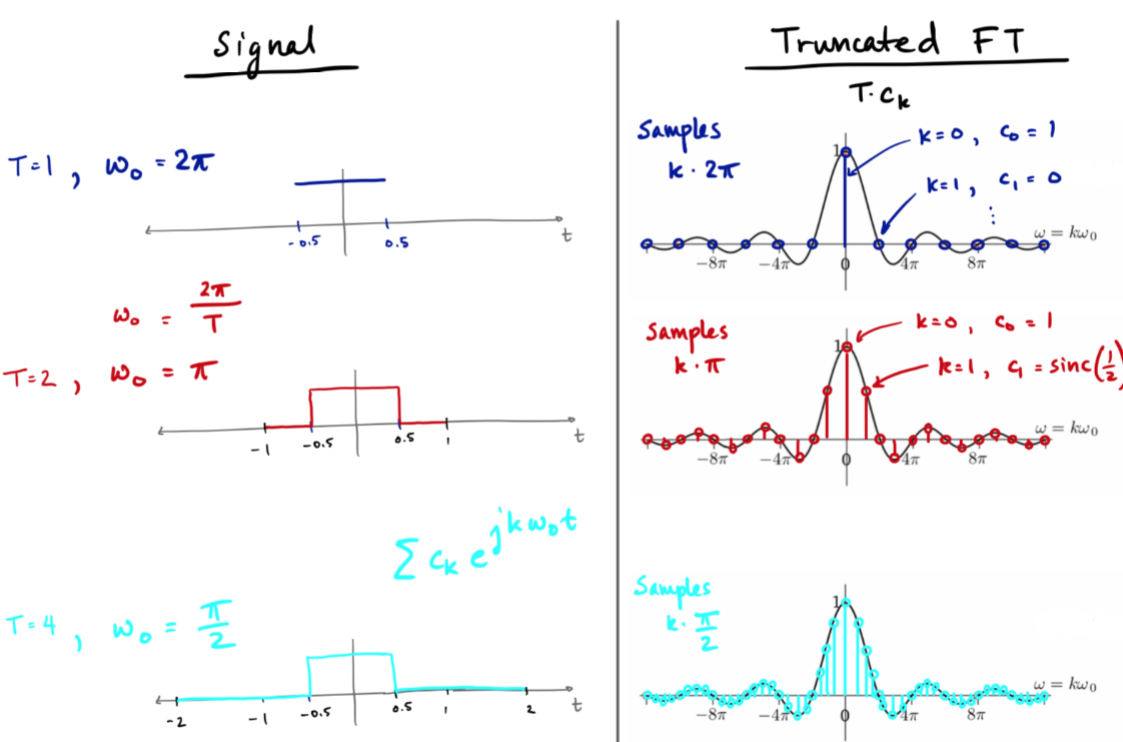 Signal
T=1 , ω₀ = 2π
-0.5 0.5 t
ω₀ = 2π/T
T=2 , ω₀ = π
-1 -0.5 0.5 1 t
∑ cₖ e^{jkω₀t}
T=4 , ω₀ = π/2
-2 -1 -0.5 0.5 1 2 t
Truncated FT
T·cₖ
Samples
k·2π
k=0 , c₀ = 1
k=1 , c₁ = 0
⋮
1
ω = kω₀
−8π −4π 0 4π 8π
Samples
k·π
k=0 , c₀ = 1
k=1 , c₁ = sinc(1/2)
1
ω = kω₀
−8π −4π 0 4π 8π
Samples
k·π/2
1
ω = kω₀
−8π −4π 0 4π 8π